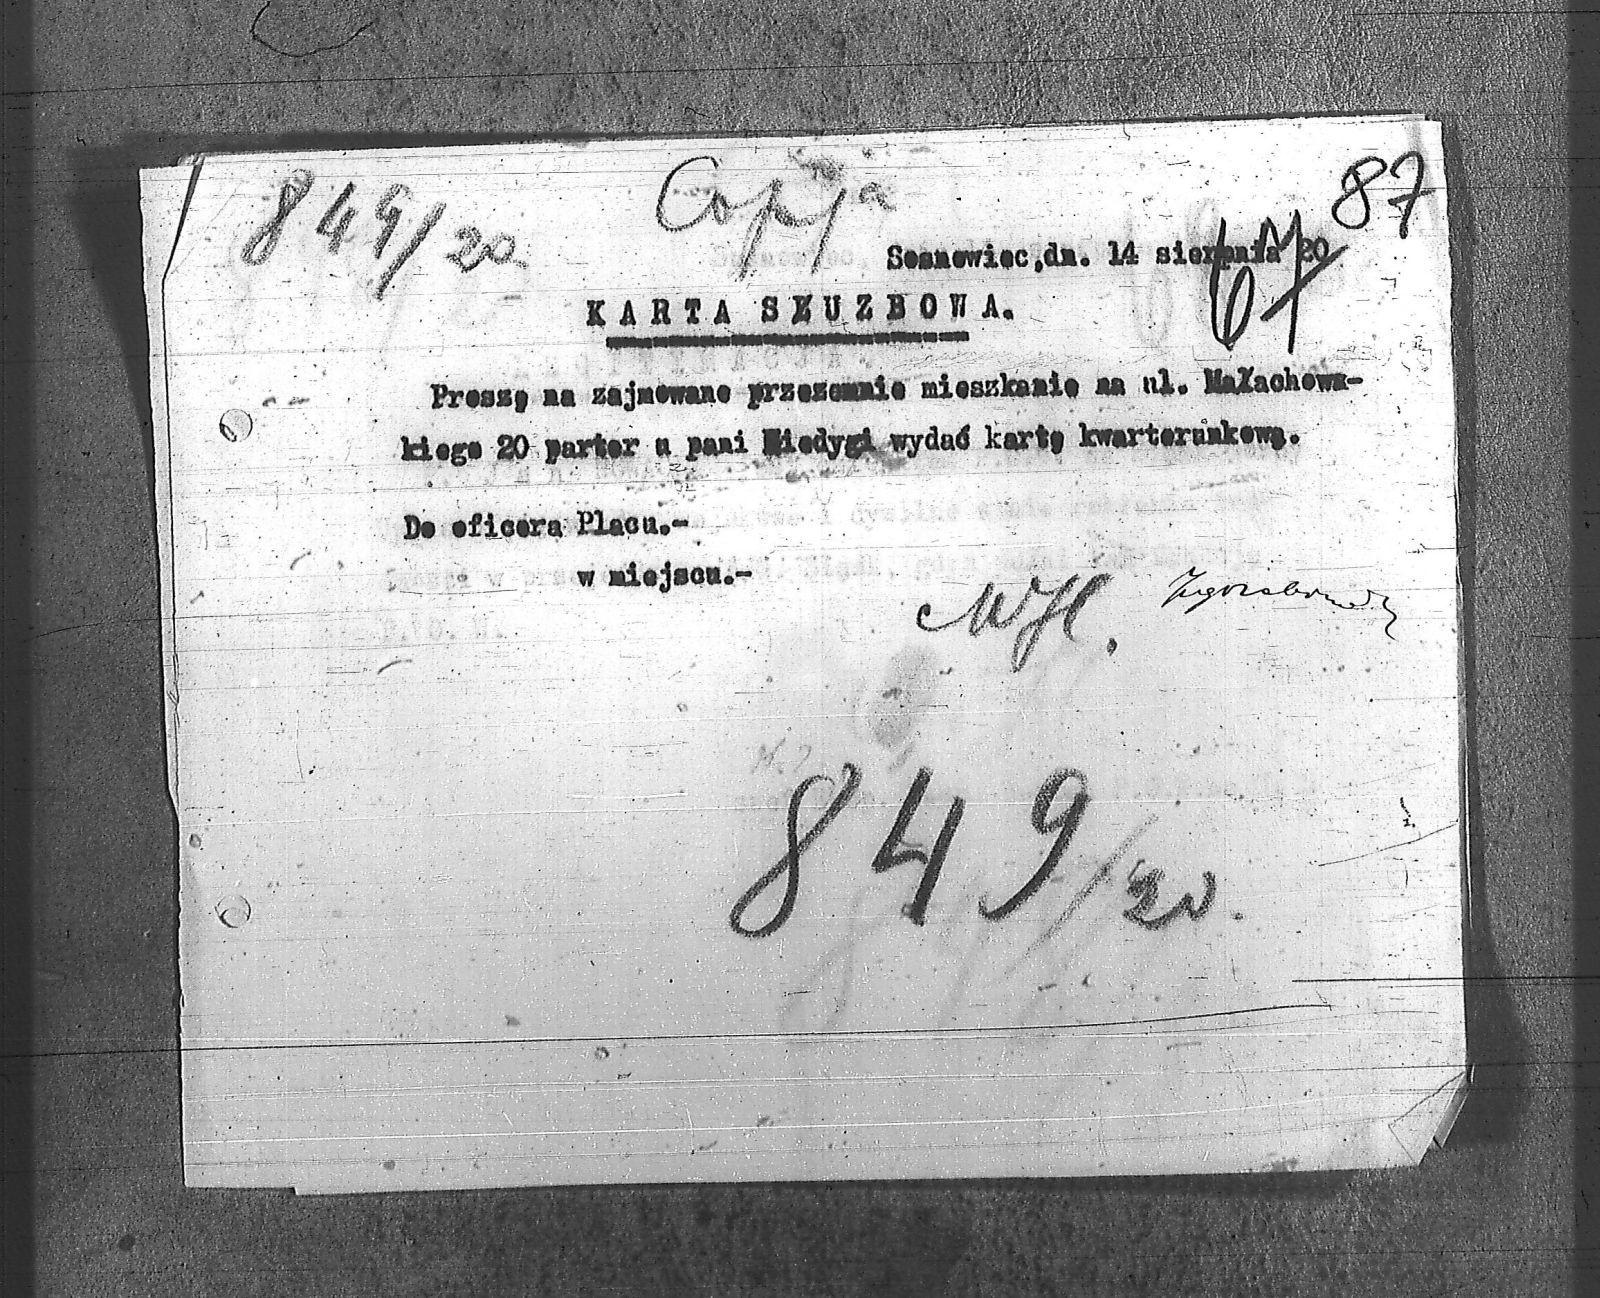 87
849/20
Copja
Sosnowiec,dn. 14 sierpnia 20
67
KARTA SŁUZBOWA.
Proszę na zajmowane przezemnie mieszkanie na ul. Małachows-
kiego 20 parter u pani Niedygi wydać kartę kwaterunkową.
Do oficera Placu.-
w miejscu.-
849/20.